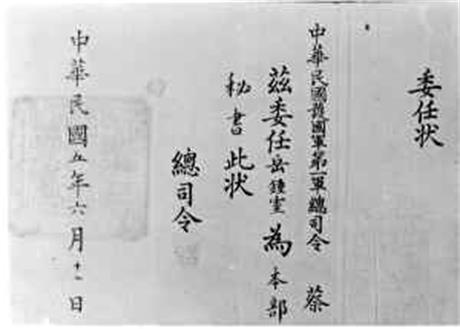 委任状
中華民國護國軍第一軍總司令 蔡
茲委任岳鍾奎為本部
秘書此状
總司令
中華民國五年六月十一日